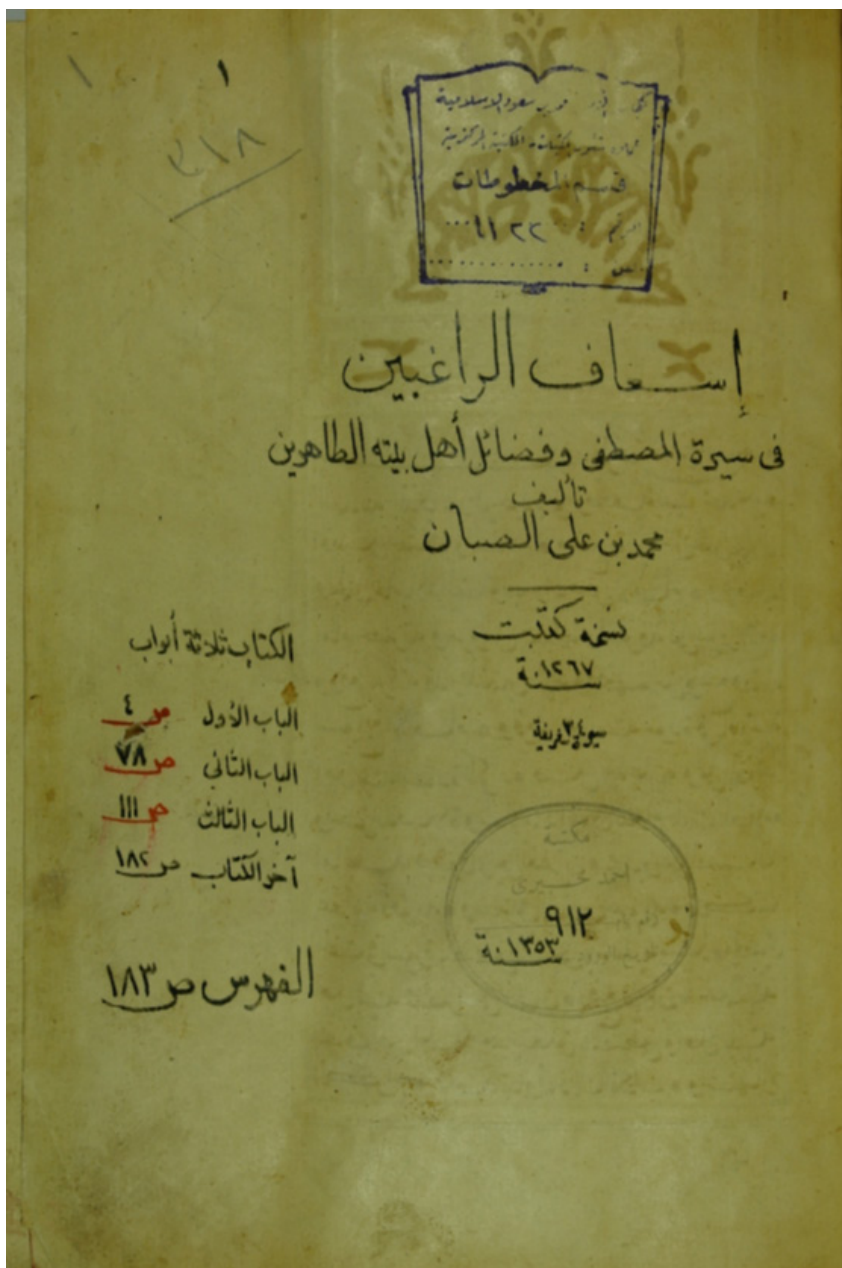 ١
١
٣١٨
سعود الإسلامية
قسم المخطوطات
٩١٢٢
إسعاف الراغبين
فى سيرة المصطفى وفضائل أهل بيته الطاهرين
تأليف
محمد بن على الصبان
نسخة كتبت
سنة ١٢٦٧
الكتاب ثلاثة أبواب
الباب الأول ص ٤
الباب الثانى ص ٧٨
الباب الثالث ص ١١١
آخر الكتاب ص ١٨٢
الفهرس ص ١٨٣
مكتبة
أحمد خيرى
٩١٢
سنة ١٣٥٣